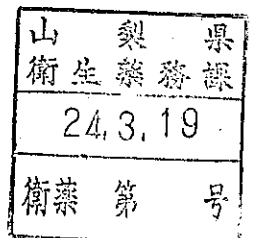 山梨県
衛生薬務課
24.3.19
衛薬第 号